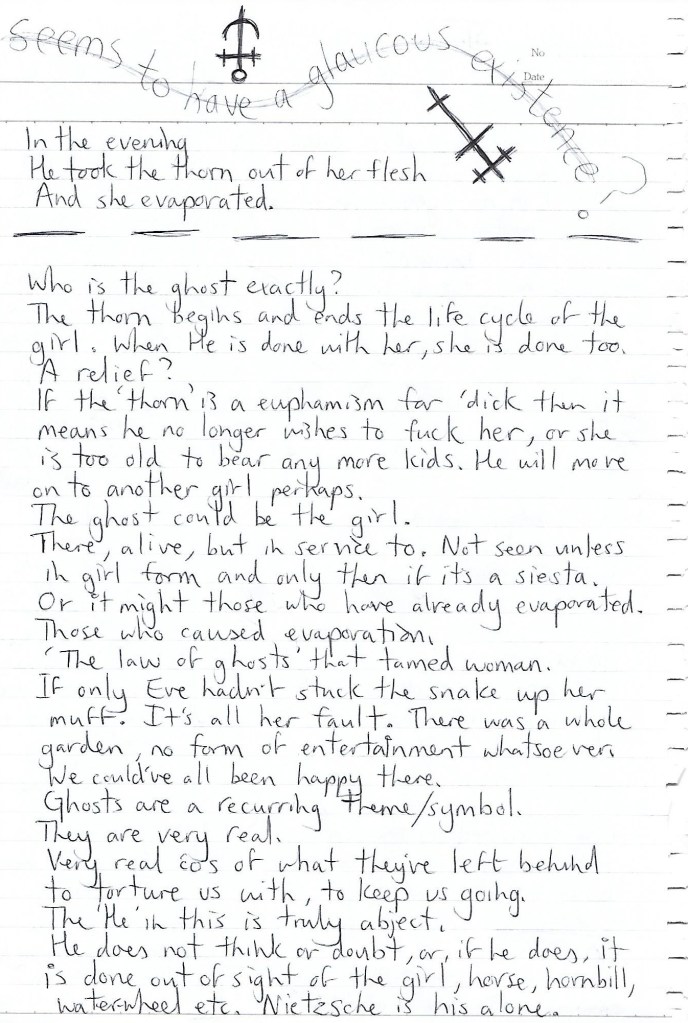 seems to have a glaucous existence?
No
Date
In the evening
He took the thorn out of her flesh
And she evaporated.
Who is the ghost exactly?
The thorn begins and ends the life cycle of the
girl. When He is done with her, she is done too.
A relief?
If the 'thorn' is a euphamism for 'dick then it
means he no longer wishes to fuck her, or she
is too old to bear any more kids. He will move
on to another girl perhaps.
The ghost could be the girl.
There, alive, but in service to. Not seen unless
in girl form and only then if it's a siesta.
Or it might those who have already evaporated.
Those who caused evaporation.
'The law of ghosts' that tamed woman.
If only Eve hadn't stuck the snake up her
muff. It's all her fault. There was a whole
garden, no form of entertainment whatsoever.
We could've all been happy there.
Ghosts are a recurring theme/symbol.
They are very real.
Very real cos of what they've left behind
to torture us with, to keep us going.
The 'He' in this is truly abject.
He does not think or doubt, or, if he does, it
is done out of sight of the girl, horse, hornbill,
waterwheel etc. Nietzsche is his alone.